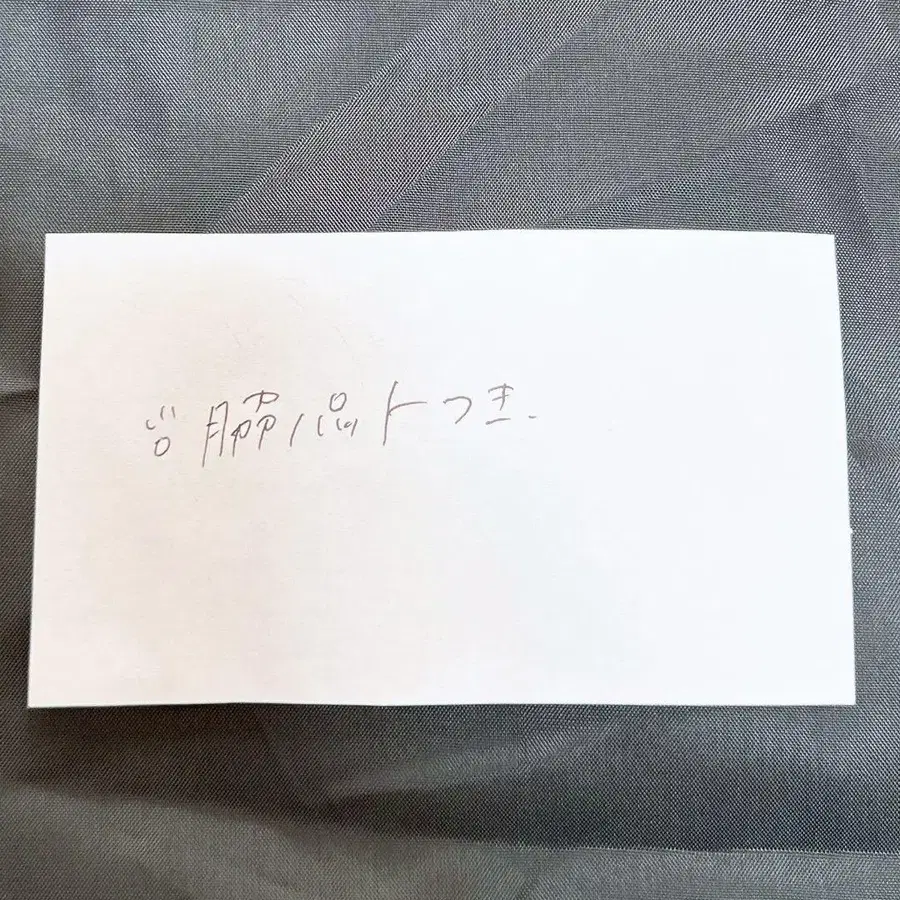 脇パットつき.